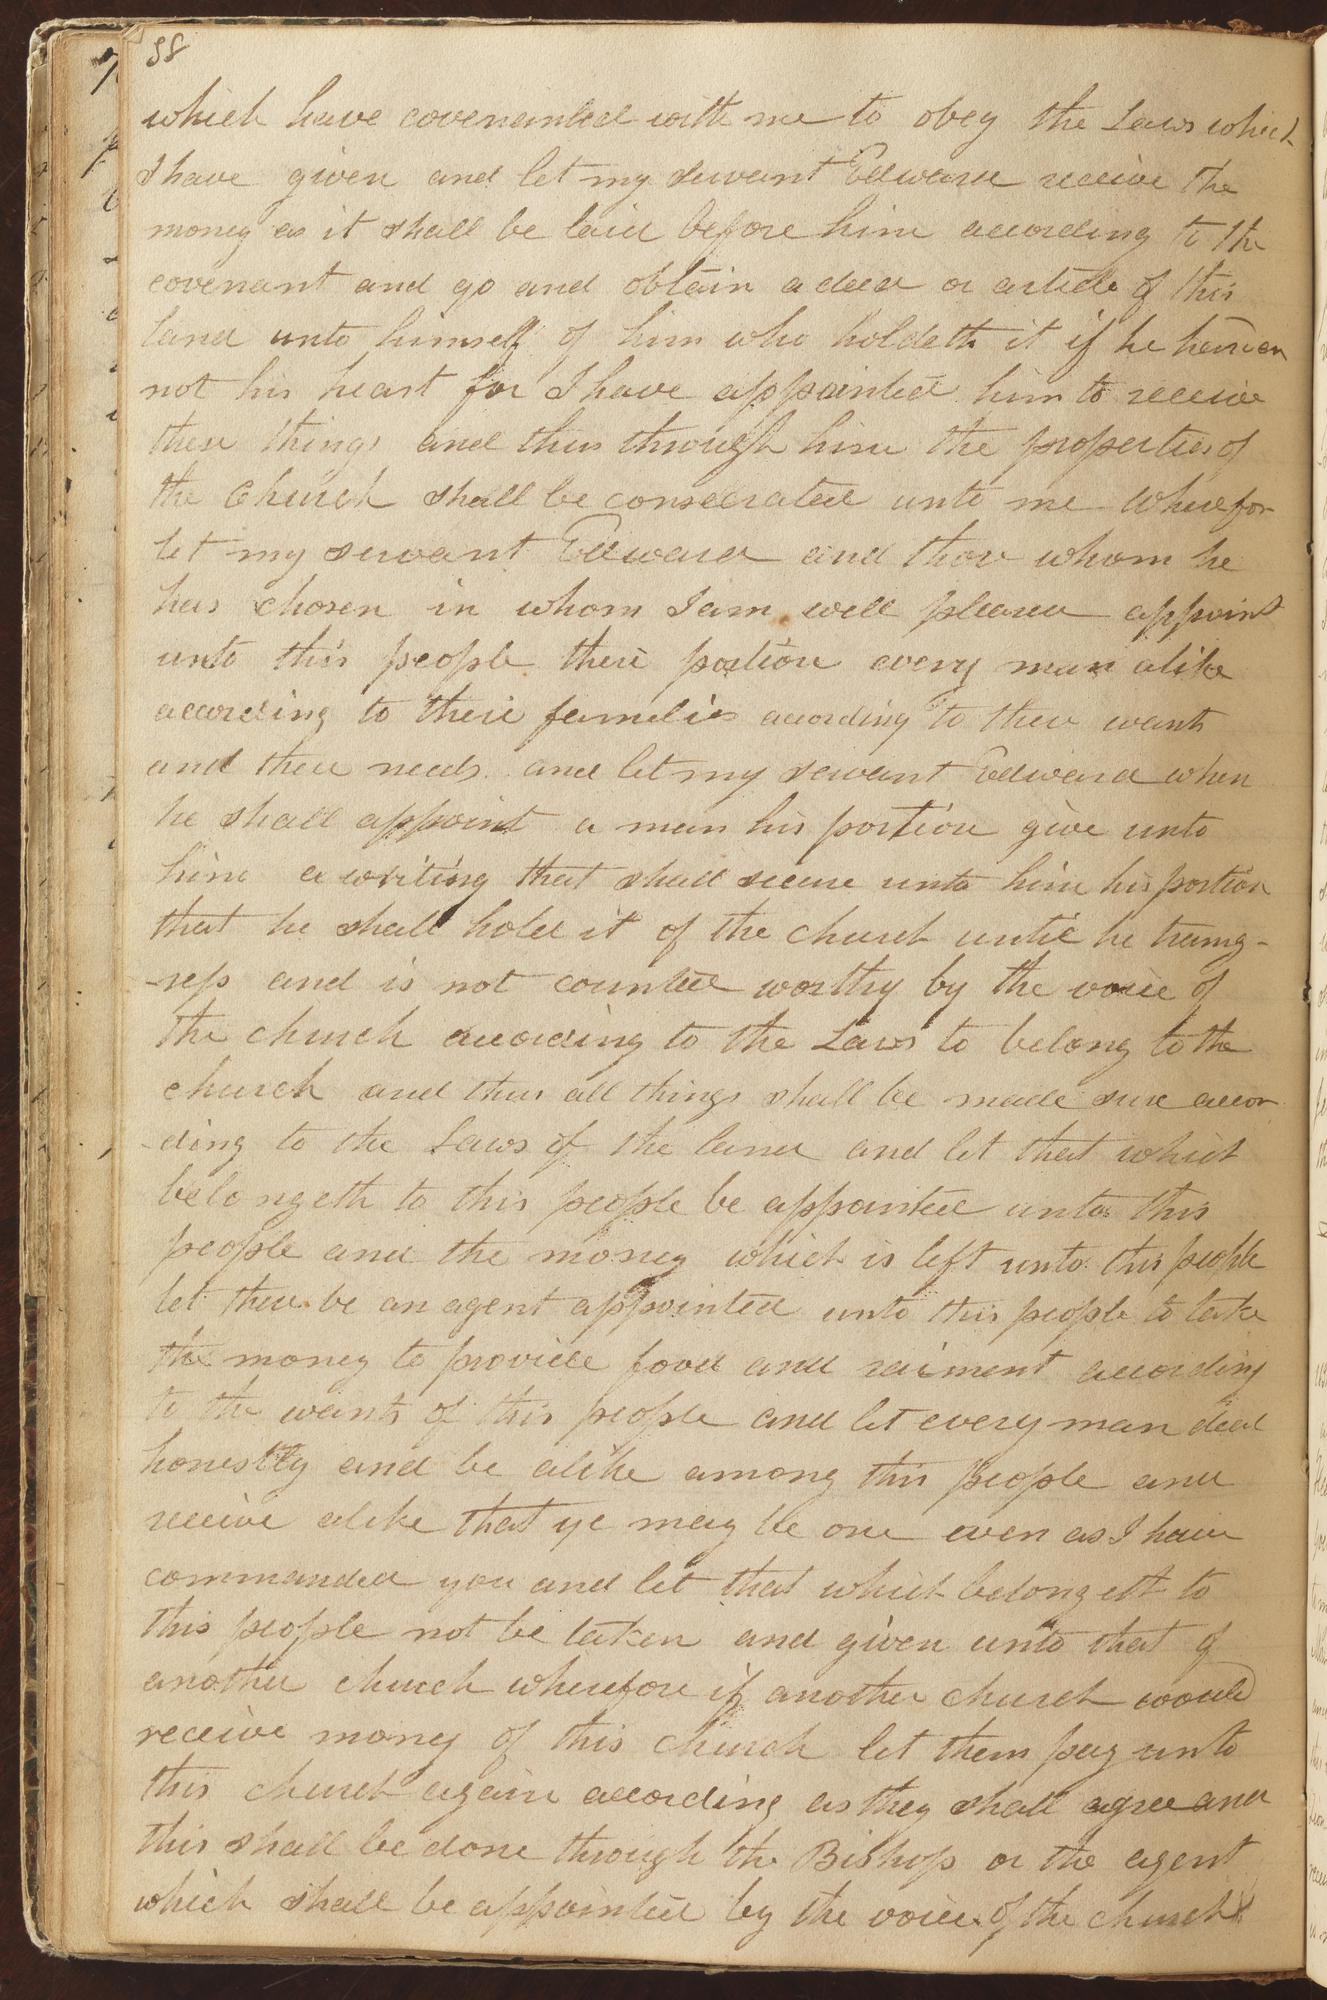 58
which have covenanted with me to obey the Laws which
I have given and let my servant Edward receive the
money as it shall be laid before him according to the
covenant and go and obtain a deed or article of this
land unto himself of him who holdeth it if he harden
not his heart for I have appointed him to receive
these things and thus through him the properties of
the Church shall be consecrated unto me Wherefor
let my servant Edward and those whom he
has chosen in whom I am well pleased appoint
unto this people their portion every man alike
according to their families according to their wants
and their needs and let my servant Edward when
he shall appoint a man his portion give unto
him a writing that shall secure unto him his portion
that he shall hold it of the church until he trang-
-ress and is not counted worthy by the voice of
the church according to the Laws to belong to the
church and thus all things shall be made sure accor
-ding to the Laws of the land and let that which
belongeth to this people be appointed unto this
people and the money which is left unto this people
let there be an agent appointed unto this people to take
the money to provide food and raiment according
to the wants of this people and let every man deal
honestly and be alike among this people and
receive alike that ye may be one even as I have
commanded you and let that which belongeth to
this people not be taken and given unto that of
another church wherefore if another church would
receive money of this church let them pay unto
this church again according as they shall agree and
this shall be done through the Bishop or the agent
which shall be appointed by the voice of the church